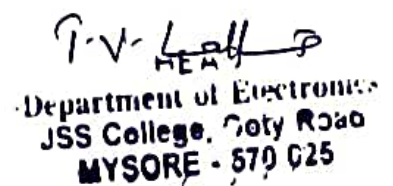 T.V.
HEAD
Department of Electronics
JSS College, Ooty Road
MYSORE - 570 025